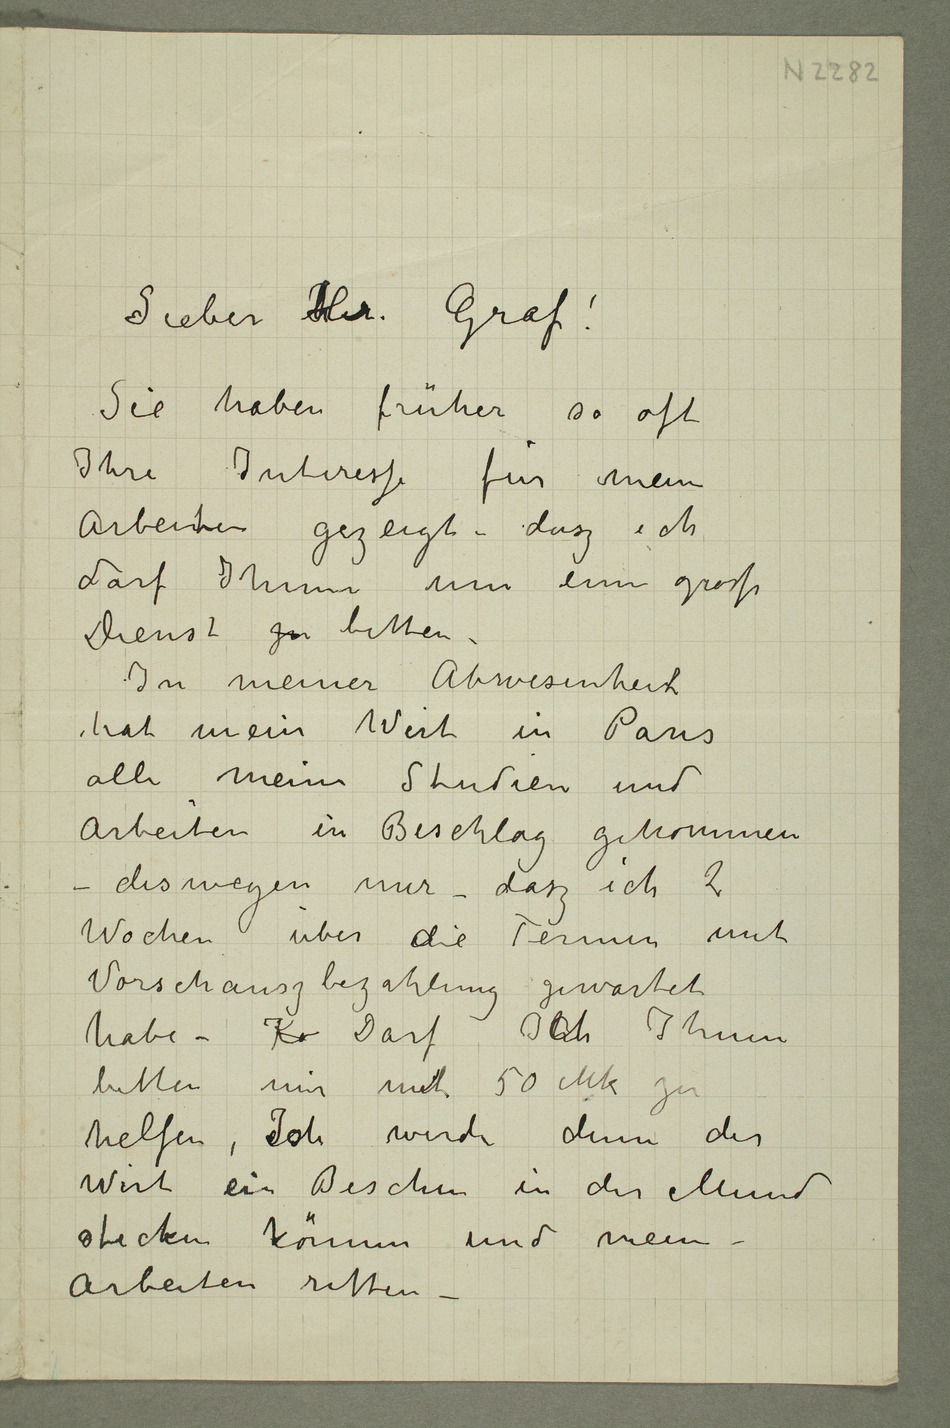 N 2282
Lieber Hr. Graf!
Sie haben früher so oft
Ihre Interesse für mein
Arbeiten gezeigt – dasz ich
darf Ihnen um einn grosse
Dienst zu bitten –
In meiner Abwesenheit
hat mein Wirt in Paris
alle meine Studien und
Arbeiten in Beschlag genommen
– deswegen nur – dasz ich 2
Wochen über die Termin mit
Vorschauszbezahlung gewartet
habe – Ko Darf Ich Ihnen
bitten mir mit 50 Mk zu
helfen, Ich werde denn der
Wirt ein Beschen in der Mund
stecken können und mein –
Arbeiten retten –